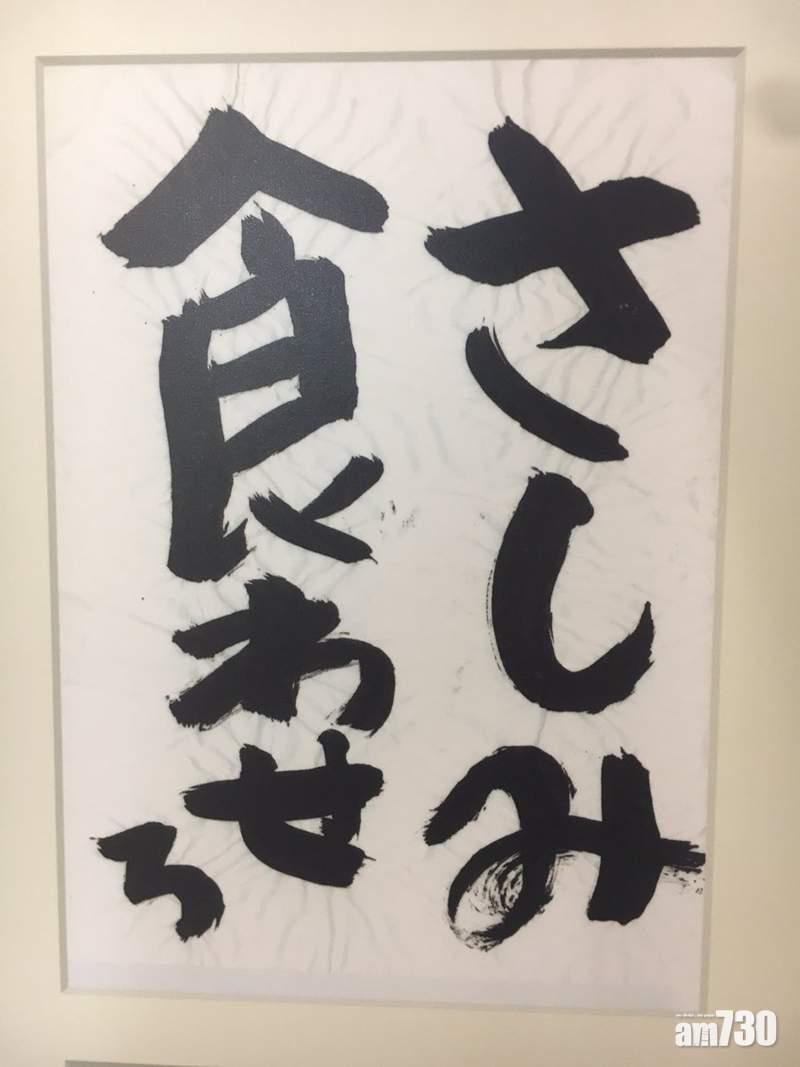 さしみ
食わせろ
am730